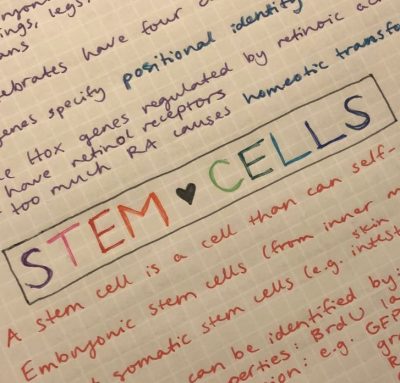 ings, legs
ans
ebrates have four
genes specify positional identity
Hox genes regulated by retinoic
have retinol receptors
too much RA causes homeotic
STEM ♥ CELLS
A stem cell is a cell than can self-
Embryonic stem cells (from inner
somatic stem cells (e.g. skin
can be identified by:
BrdU
e.g. GFP